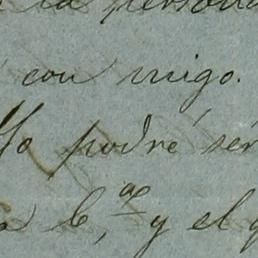 la persona
con migo.
Yo podré sér
b,ª y el